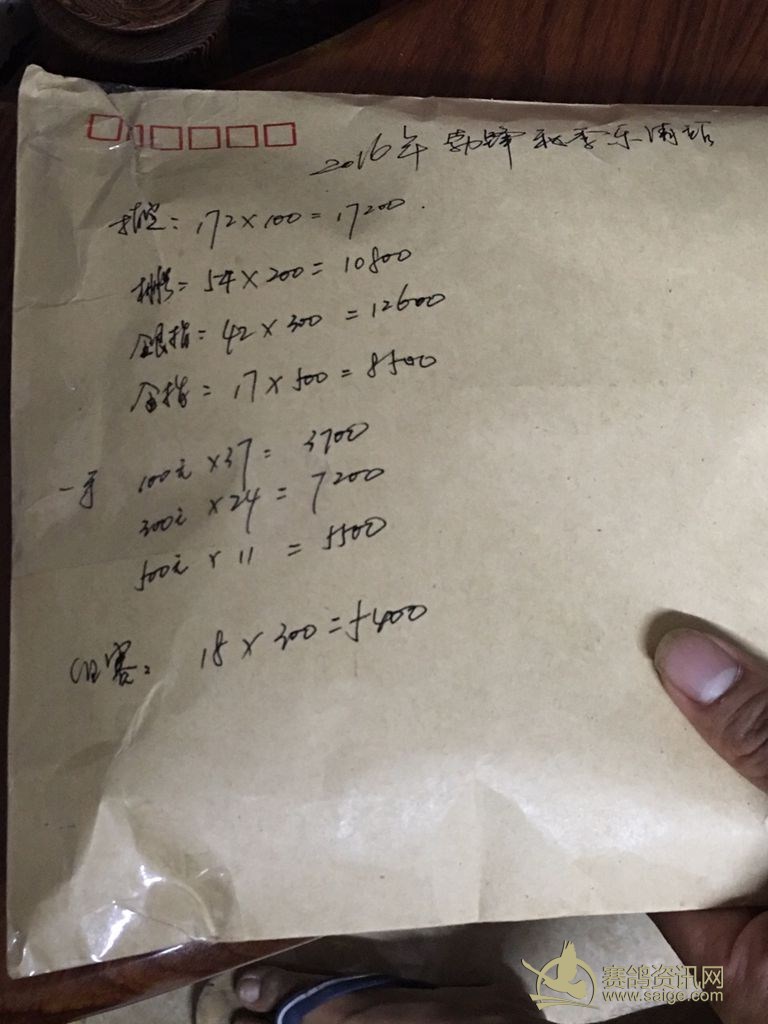 2016年 秋季乐清站
172×100=17200
54×200=10800
银指=42×300=12600
金指=17×500=8500
一羽 100元×37=3700
300元×24=7200
500元×11=5500
赛: 18×300=5400
赛鸽资讯网
www.saige.com